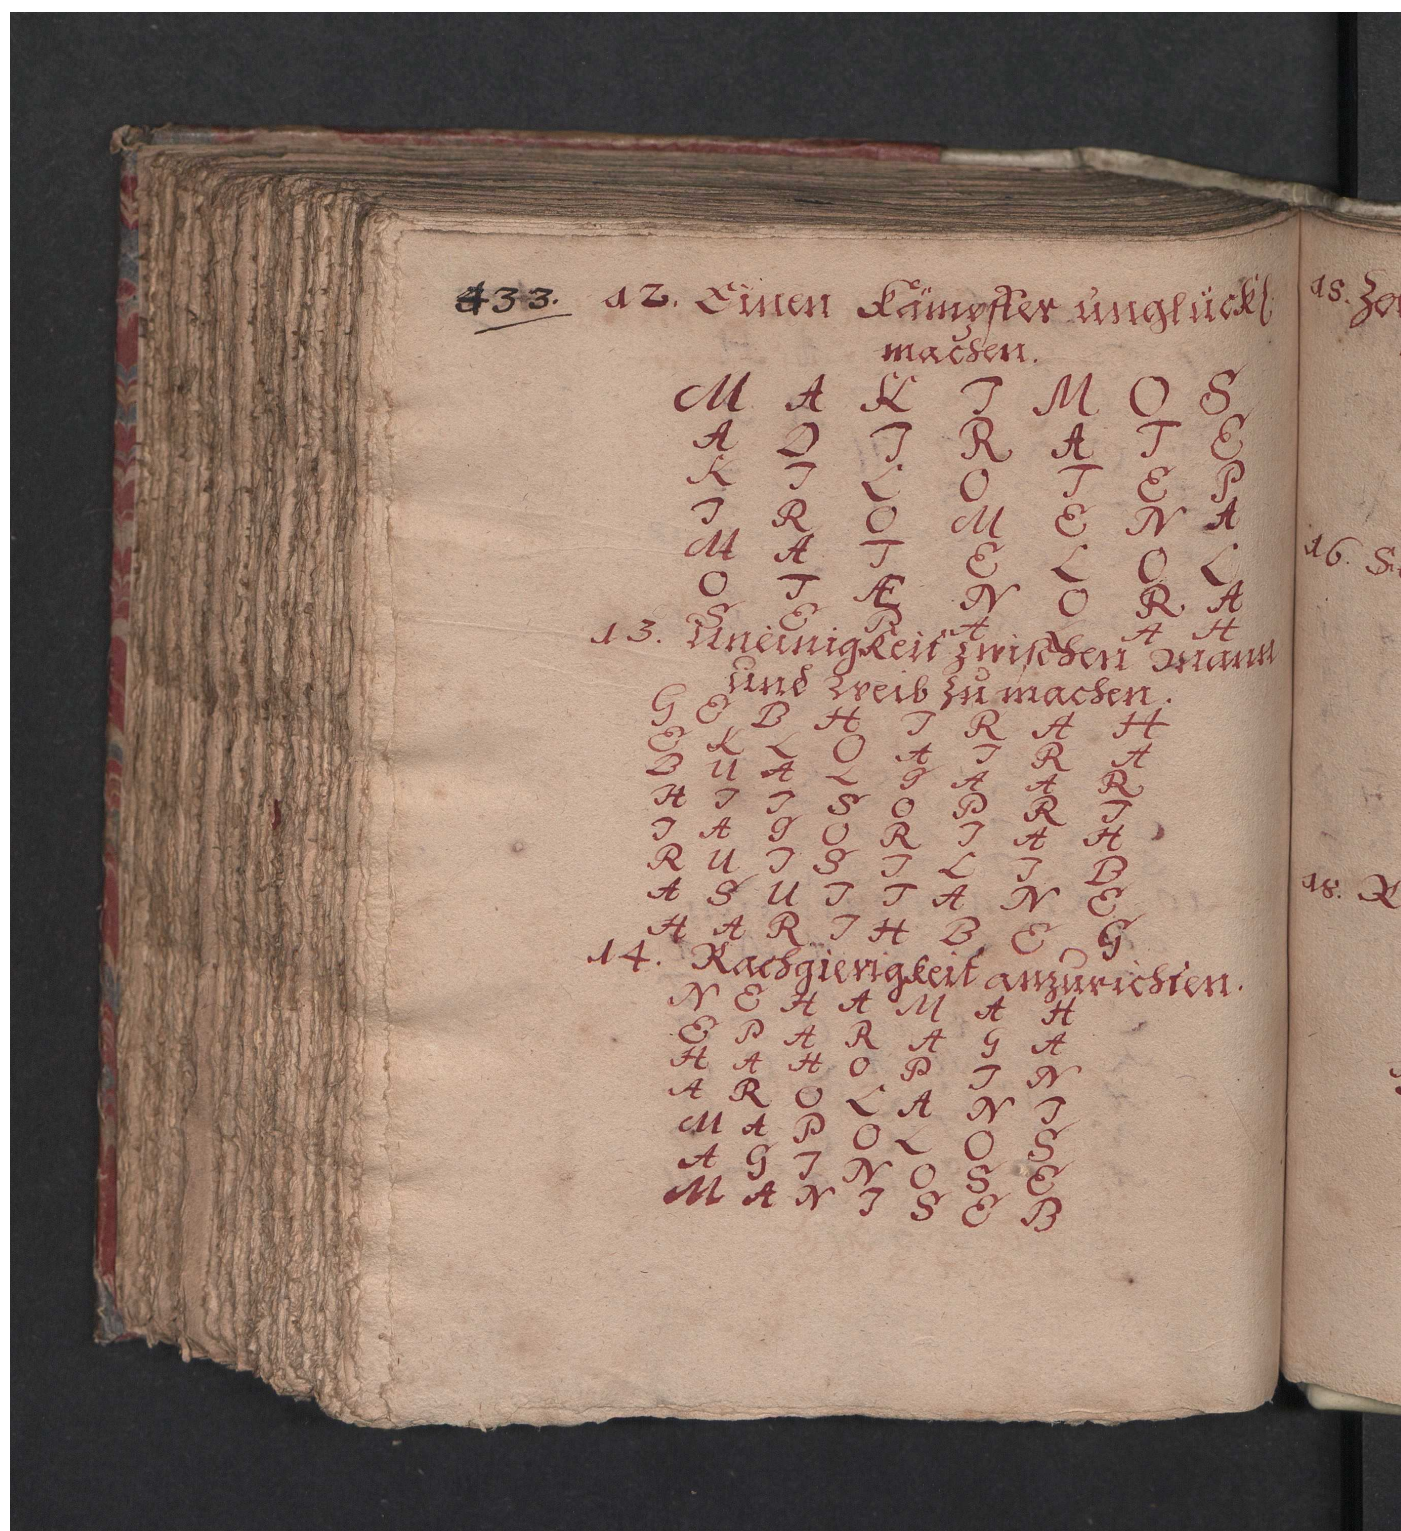 433. 12. Einen Kämpffer unglückl
machen.
M A K I M O S
A Q I R A T E
K I L O T E P
I R O M E N A
M A T E L O L
O T Æ N O R A
S E P A L A H
13. Uneinigkeit zwischen Mann
und Weib zu machen.
G E B H I R A H
E K L O A I R A
B U A L G A A R
H I I S O P R I
I A G O R I A H
R U I S I L I B
A S U I T A N E
H A R I H B E G
14. Rachgierigkeit anzurichten.
N E H A M A H
E P A R A G A
H A H O P I N
A R O L A N I
M A P O L O S
A G I N O S E
M A N I S E B
18.
16.
18.